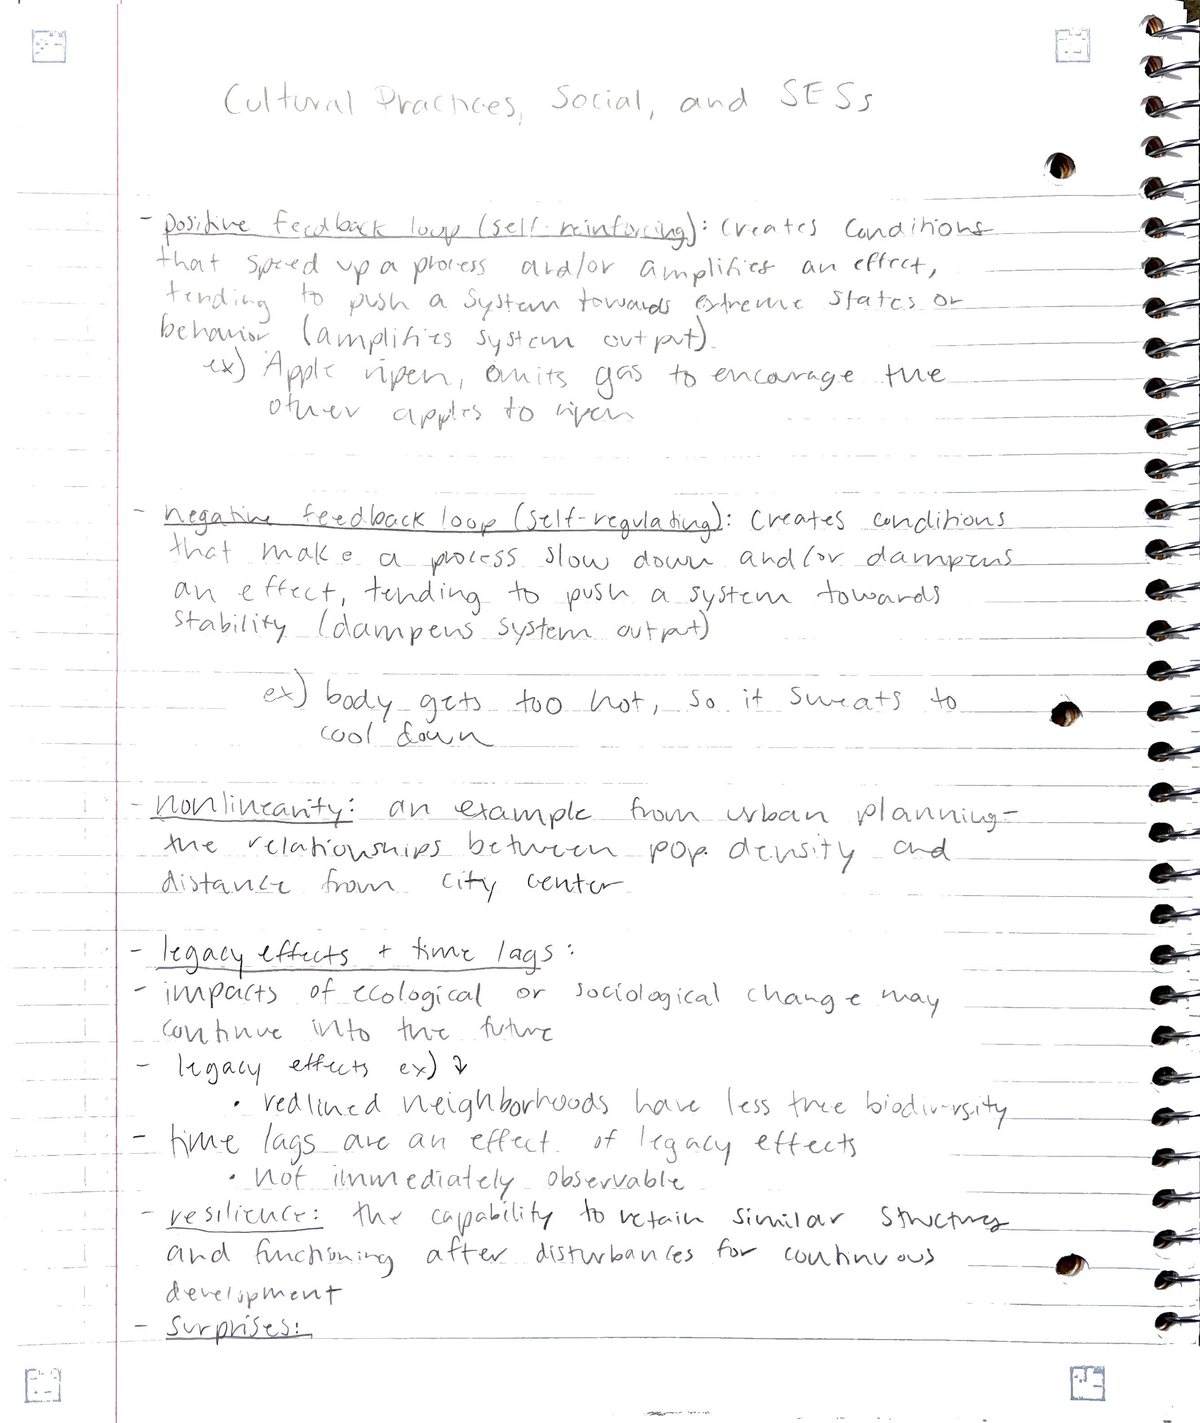 Cultural Practices, Social, and SESs
- positive feedback loop (self-reinforcing): creates conditions
that speed up a process and/or amplifies an effect,
tending to push a system towards extreme states or
behavior (amplifies system output).
ex) Apple ripen, omits gas to encourage the
other apples to ripen
- negative feedback loop (self-regulating): creates conditions
that make a process slow down and/or dampens
an effect, tending to push a system towards
stability (dampens system output)
ex) body gets too hot, so it sweats to
cool down
- nonlinearity: an example from urban planning-
the relationships between pop. density and
distance from city center
- legacy effects + time lags:
- impacts of ecological or sociological change may
continue into the future
- legacy effects ex) ↓
• redlined neighborhoods have less tree biodiversity
- time lags are an effect of legacy effects
• not immediately observable
- resilience: the capability to retain similar structures
and functioning after disturbances for continuous
development
- Surprises: